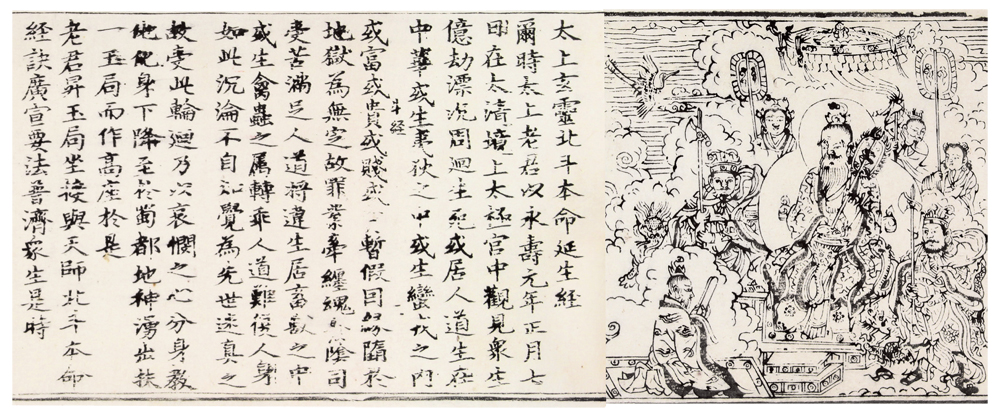 太上玄靈北斗本命延生経
爾時太上老君以永壽元年正月七
日在太清境上太極宮中觀見衆生
億劫漂沉周迴生死或居人道生在
中華或生夷狄之中或生蠻戎之內
斗経
或富或貴或賤或暫假因緣墮於
地獄為無定故罪業牽纏魂陰司
受苦滿足人道將違生居畜獸之中
或生禽蟲之属轉乖人道難復人身
如此沉淪不自知覺為先世迷真之
故受此輪迴乃以哀憫之心分身教
化身下降至於蜀都地神湧出扶
一玉局而作高座於是
老君昇玉局坐授與天師北斗本命
経訣廣宣要法普濟衆生是時